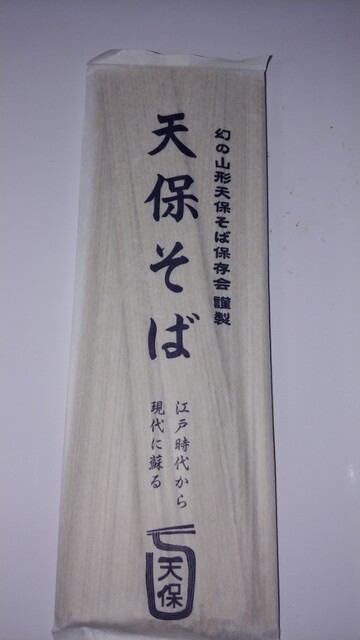 幻の山形天保そば保存会 謹製
天保そば
江戸時代から
現代に蘇る
天保